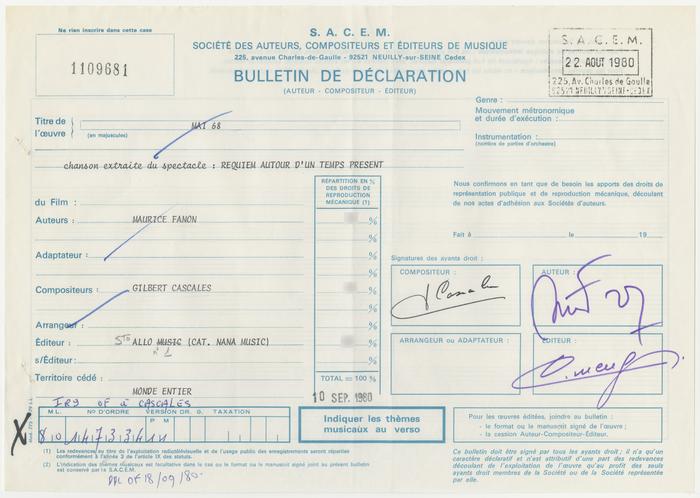 Ne rien inscrire dans cette case
1109681
S. A. C. E. M.
SOCIÉTÉ DES AUTEURS, COMPOSITEURS ET ÉDITEURS DE MUSIQUE
225, avenue Charles-de-Gaulle - 92521 NEUILLY-sur-SEINE Cedex
BULLETIN DE DÉCLARATION
(AUTEUR - COMPOSITEUR - ÉDITEUR)
S. A. C. E. M.
22. AOUT 1980
225, Av. Charles de Gaulle
92521 NEUILLY-SEINE-CEDEX
Titre de l'œuvre
(en majuscules)
MAI 68
chanson extraite du spectacle : REQUIEM AUTOUR D'UN TEMPS PRESENT
Genre :
Mouvement métronomique
et durée d'exécution :
Instrumentation :
(nombre de parties d'orchestre)
RÉPARTITION EN %
DES DROITS DE
REPRODUCTION
MÉCANIQUE (1)
du Film :
Auteurs : MAURICE FANON %
Adaptateur : %
Compositeurs : GILBERT CASCALES %
Arrangeur %
Éditeur : Sté ALLO MUSIC (CAT. NANA MUSIC) %
n° 1
s/Éditeur : %
Territoire cédé : TOTAL = 100 %
MONDE ENTIER
10 SEP. 1980
Nous confirmons en tant que de besoin les apports des droits de
représentation publique et de reproduction mécanique, découlant
de nos actes d'adhésion aux Sociétés d'auteurs.
Fait à le 19
Signatures des ayants droit :
COMPOSITEUR :
AUTEUR :
ARRANGEUR OU ADAPTATEUR :
ÉDITEUR :
CASCALES
ML. N° D'ORDRE VERSION DR. G. TAXATION
P M
Indiquer les thèmes
musicaux au verso
Pour les œuvres éditées, joindre au bulletin :
- le format ou le manuscrit signé de l'œuvre ;
- la cession Auteur-Compositeur-Éditeur.
(1) Les redevances au titre de l'exploitation radiotélévisuelle et de l'usage public des enregistrements seront réparties
conformément à l'annexe 3 de l'article IX des statuts.
(2) L'indication des thèmes musicaux est facultative dans le cas où le format ou le manuscrit signé joint au présent bulletin
est conservé par la S.A.C.E.M.
Ce bulletin doit être signé par tous les ayants droit ; il n'a qu'un
caractère déclaratif et n'est attributif d'une part des redevances
découlant de l'exploitation de l'œuvre qu'au profit des seuls
ayants droit membres de la Société ou de la Société représentée
par elle.
18/09/80